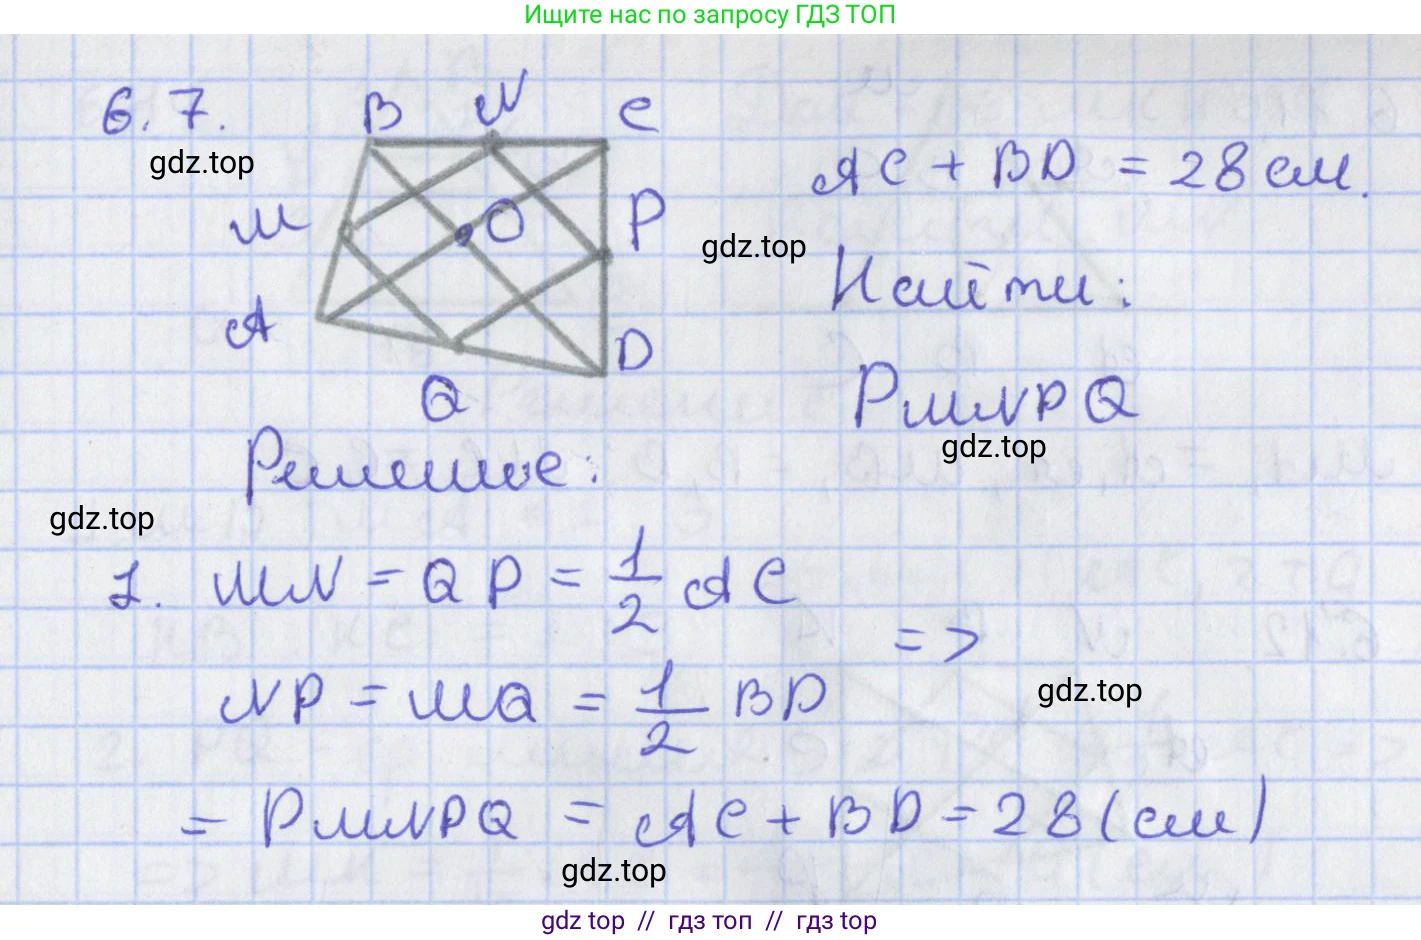 Ищите нас по запросу ГДЗ ТОП
6.7.
B N C
gdz.top
AC + BD = 28 см.
M O P
gdz.top
Найти:
A D
Q
PMNPQ
gdz.top
Решение:
gdz.top
1. MN = QP = 1/2 AC
=>
NP = MQ = 1/2 BD
gdz.top
= PMNPQ = AC + BD = 28 (см)
gdz.top
gdz top // гдз топ // гдз top